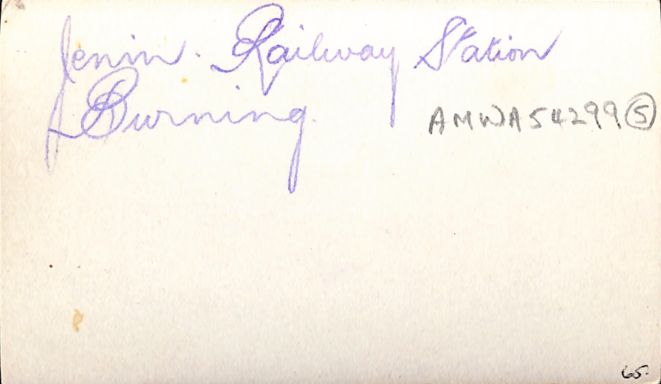 Jenin. Railway Station
Burning.
AMWA54299 5
65.